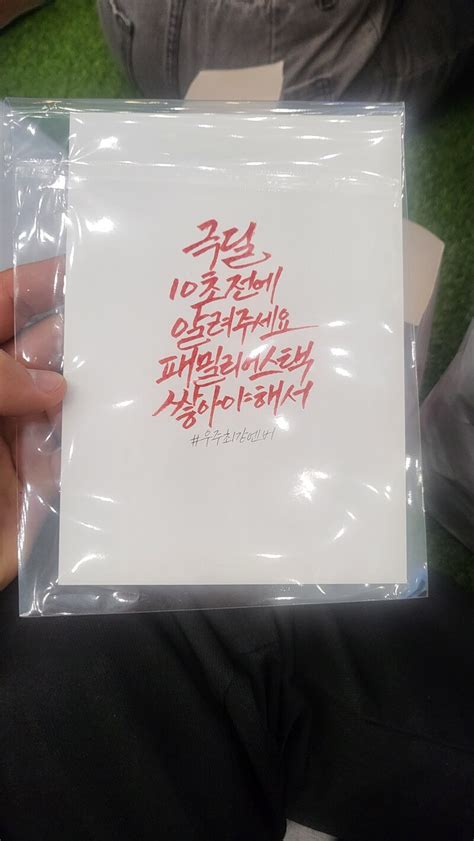 극딜
10초전에
알려주세요
패밀리어스택
쌓아야해서
#우주최강엔버